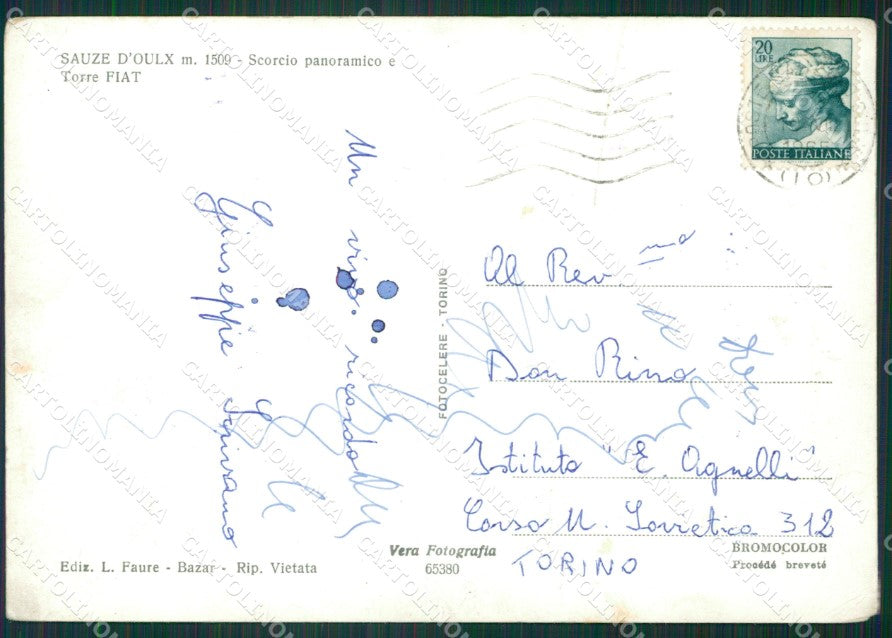 SAUZE D'OULX m. 1509 - Scorcio panoramico e
Torre FIAT
20
LIRE
POSTE ITALIANE
(TO)
Un vivo ricordo
Giuseppe
Al Rev mo
Don Rino
Istituto "E. Agnelli"
Corso U. Sovietica 312
TORINO
FOTOCELERE - TORINO
Vera Fotografia
65380
BROMOCOLOR
Procédé breveté
Ediz. L. Faure - Bazar - Rip. Vietata
CARTOLINOMANIA